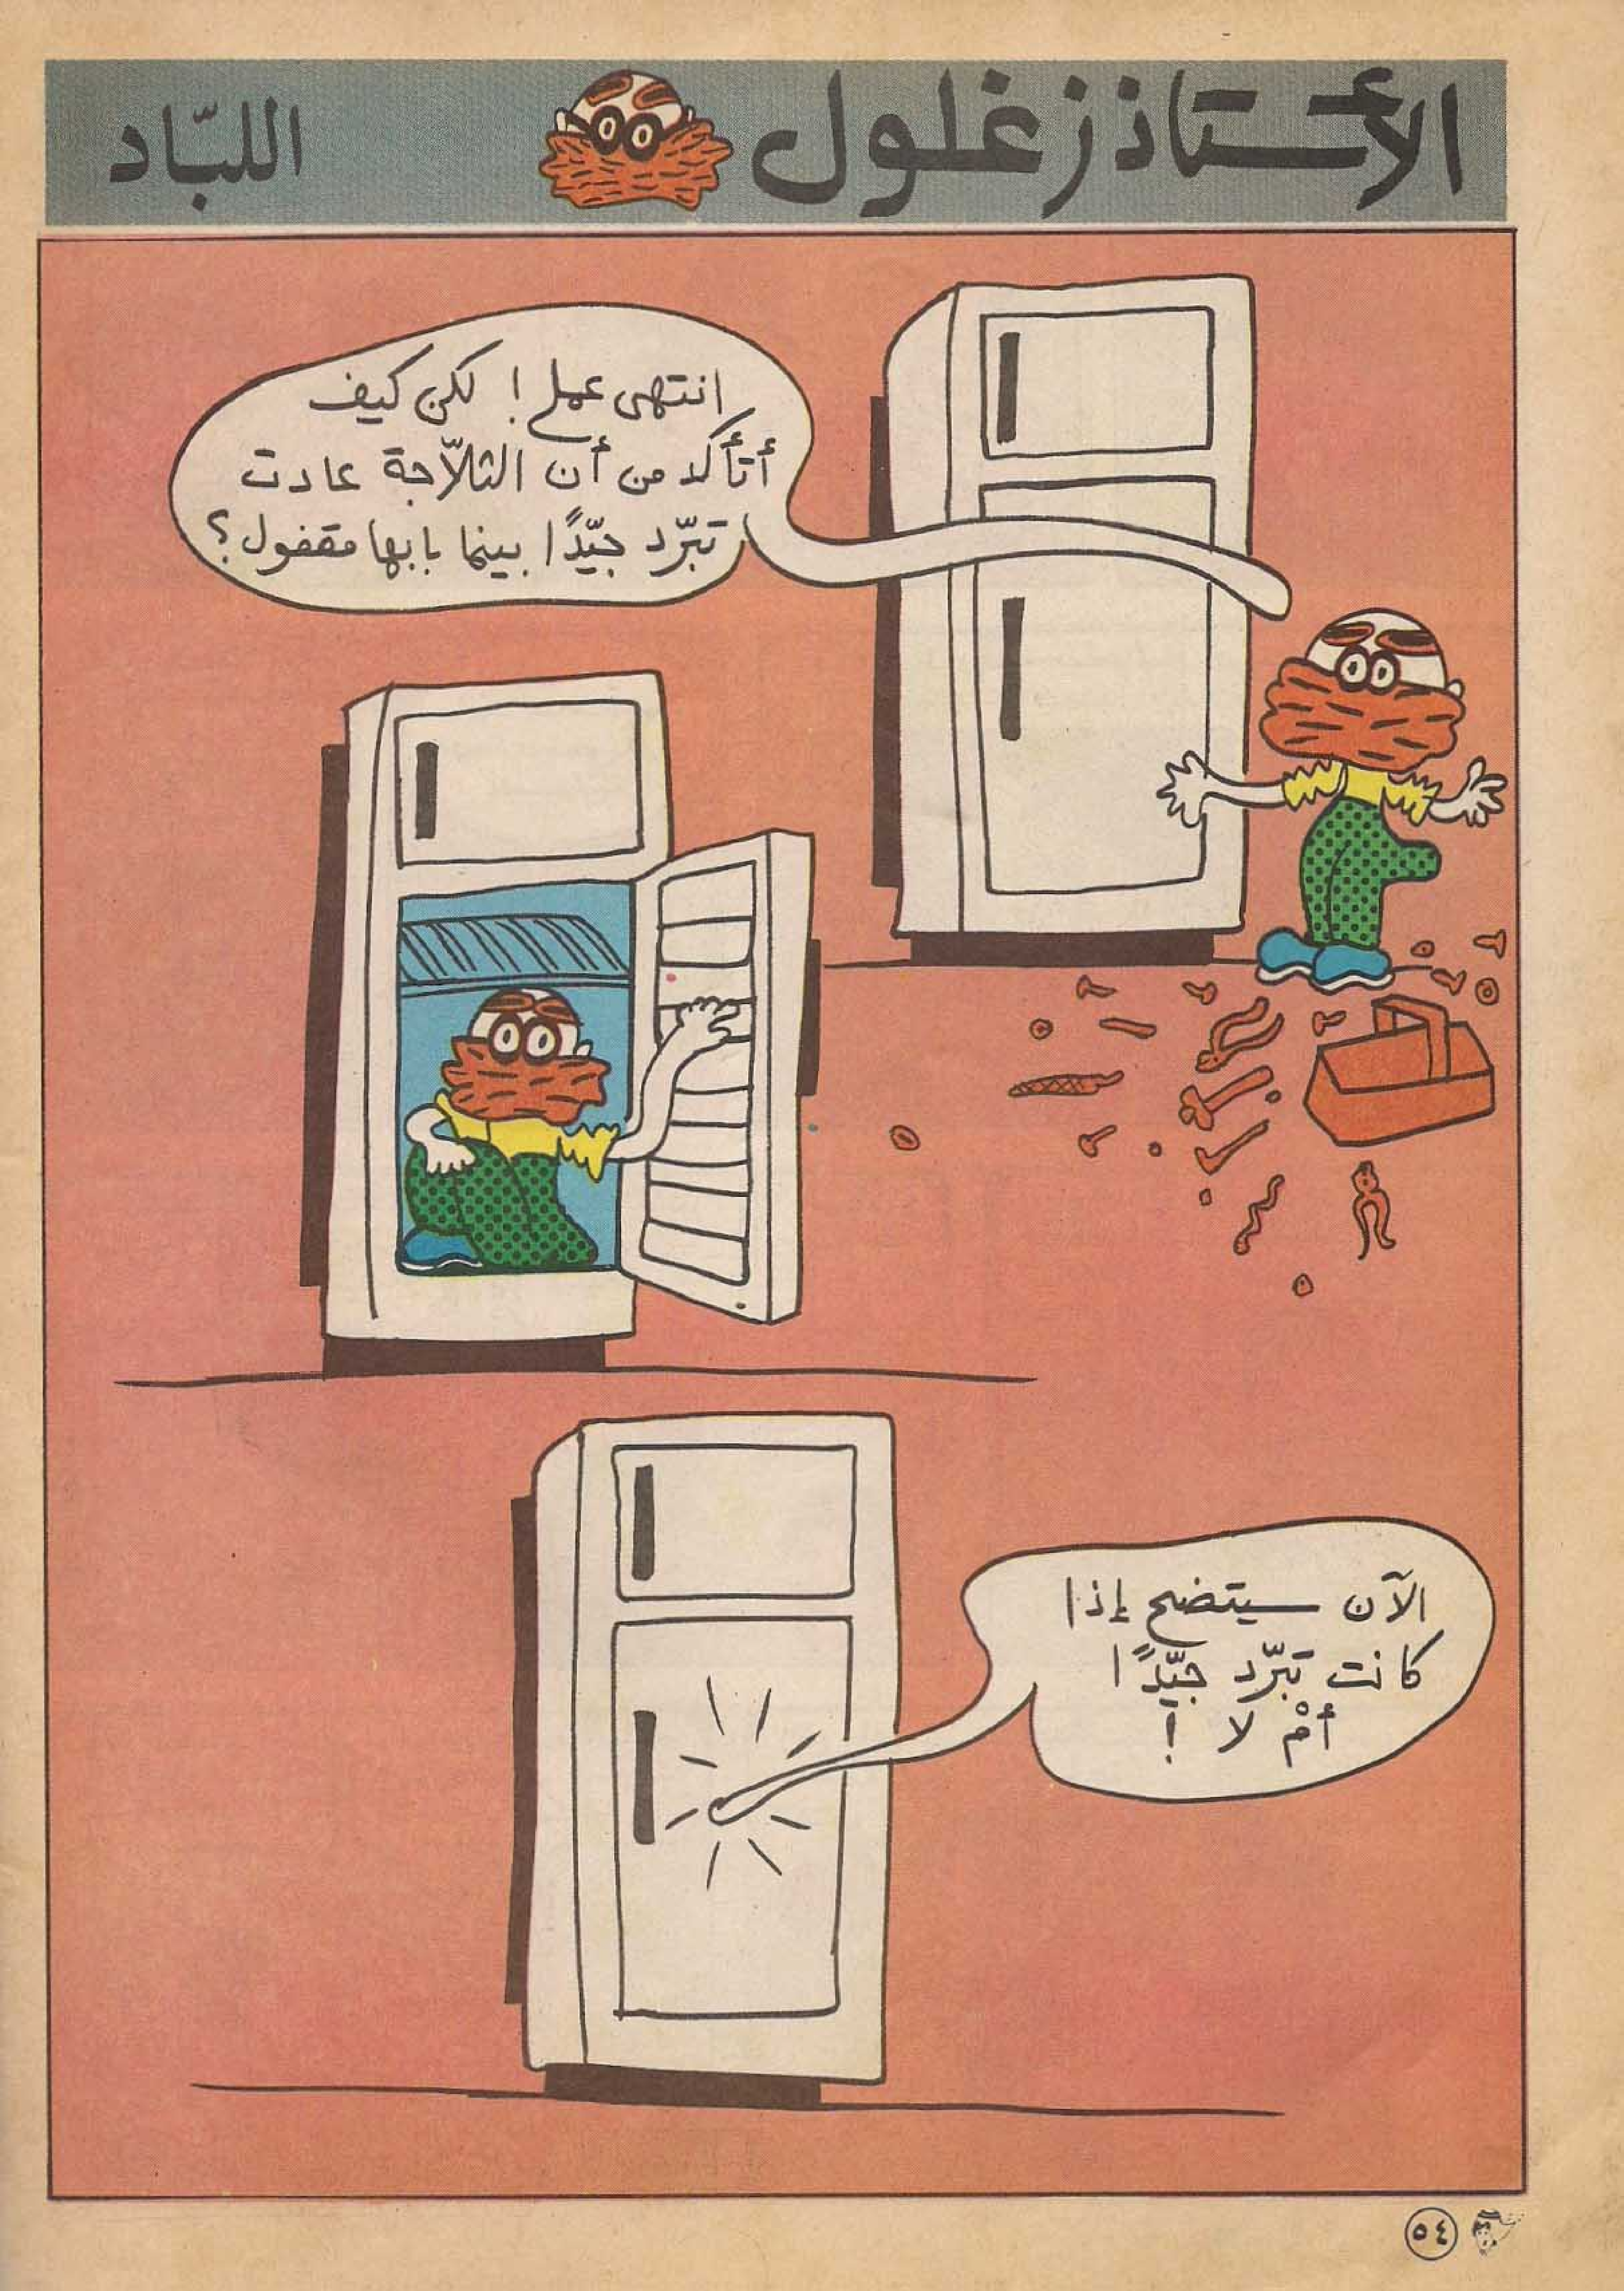 الأستاذ زغلول
اللبّاد
انتهى عملي! لكن كيف
أتأكد من أن الثلاّجة عادت
تبرّد جيّدًا بينما بابها مقفول؟
الآن سيتضح إذا
كانت تبرّد جيّدًا
أمْ لا !
٥٤